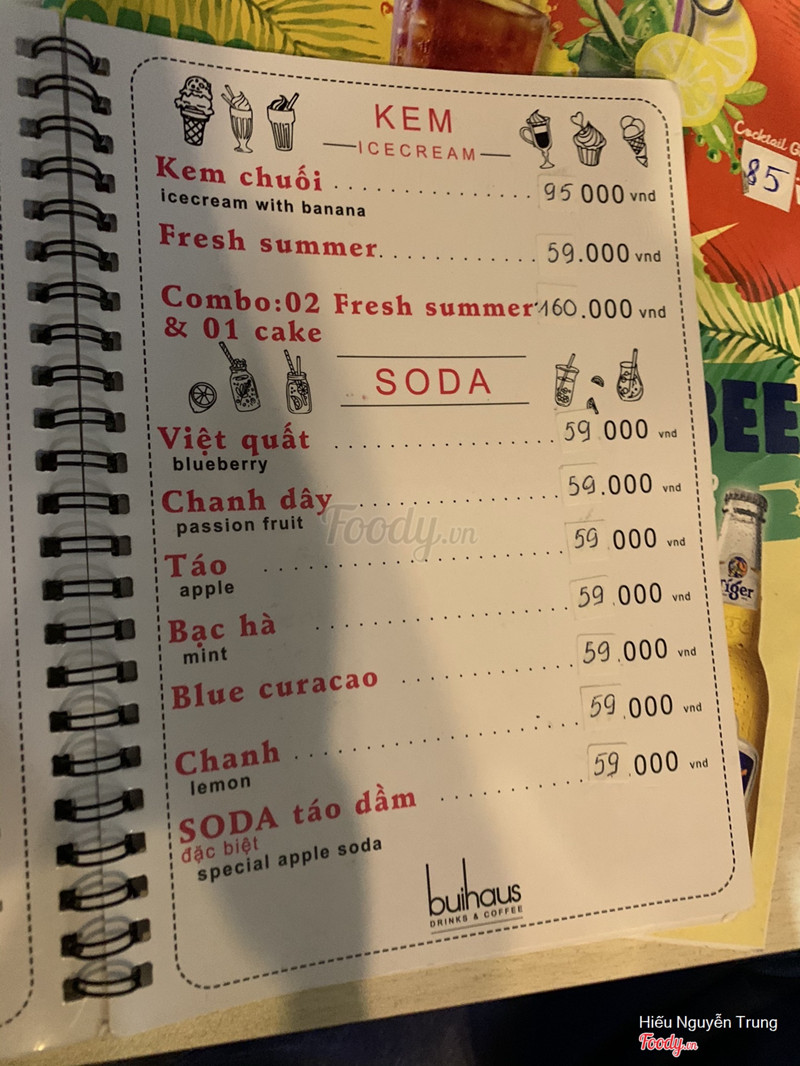 KEM
ICECREAM
Kem chuối 95 000 vnd
icecream with banana
Fresh summer 59.000 vnd
Combo:02 Fresh summer 160.000 vnd
& 01 cake
SODA
Việt quất 59 000 vnd
blueberry
Chanh dây 59.000 vnd
passion fruit
Táo 59 000 vnd
apple
Bạc hà 59.000 vnd
mint
Blue curacao 59.000 vnd
Chanh 59.000 vnd
lemon
SODA táo dầm 59.000 vnd
đặc biệt
special apple soda
buihaus
DRINKS & COFFEE
Foody.vn
Cocktail
85
BEE
Tiger
Hiếu Nguyễn Trung
Foody.vn